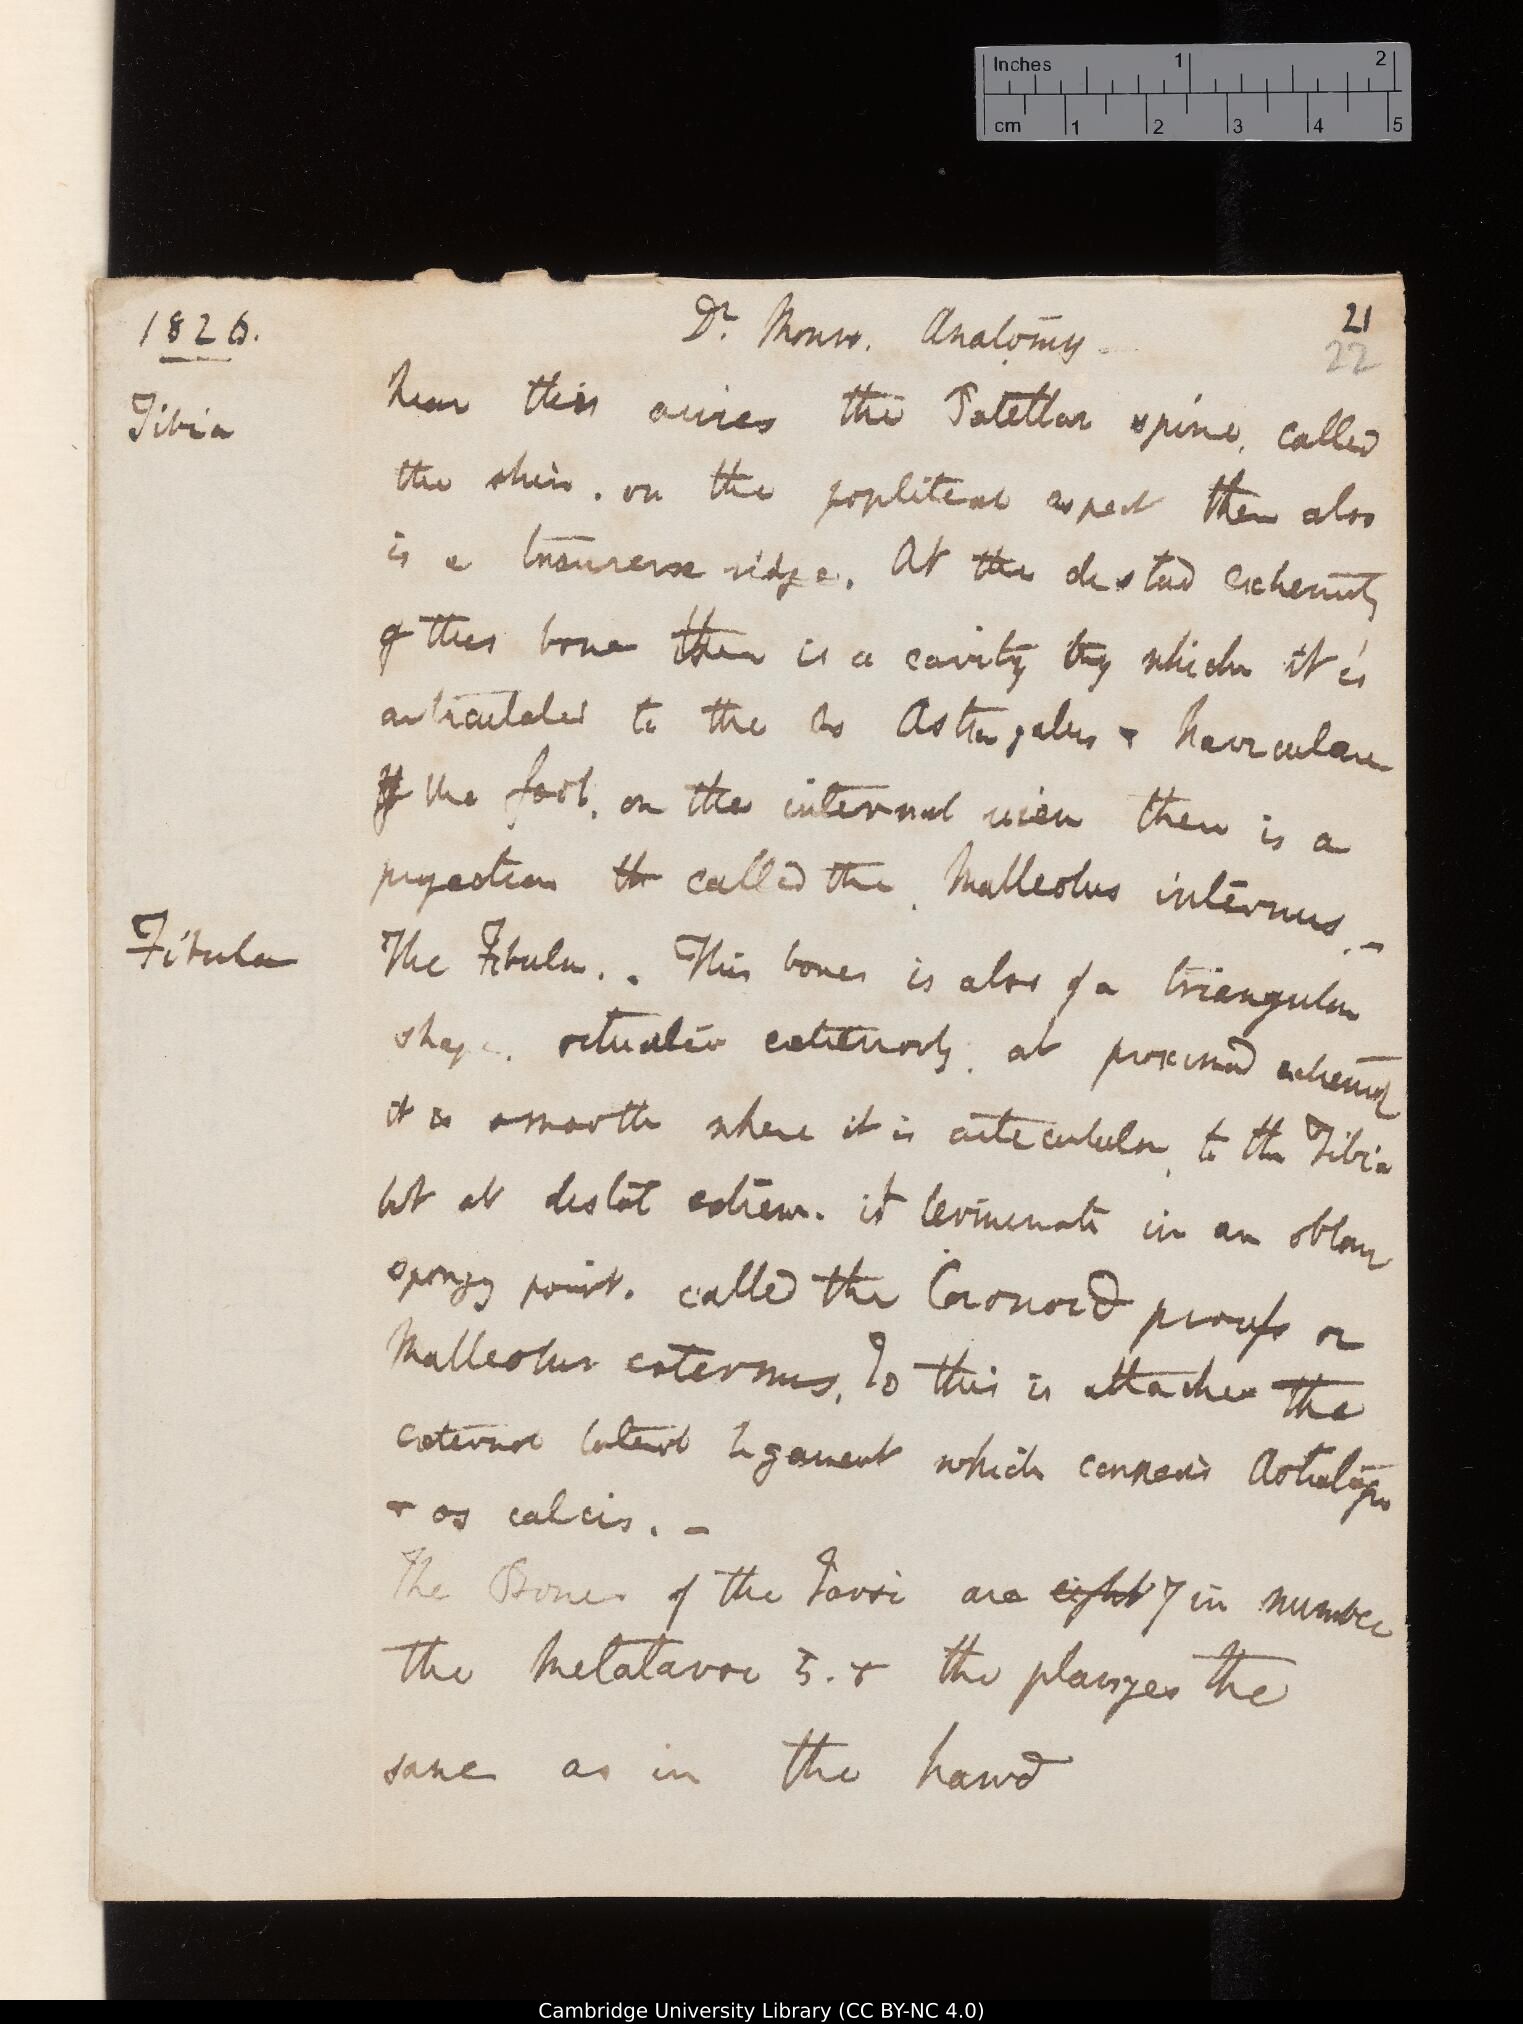 Inches 1 2
cm 1 2 3 4 5
1826.
Dr. Monro. Anatomy.
21
22
Tibia
near this arises the Patellar spine, called
the shin. on the popliteal aspect there also
is a transverse ridge. At the distad extremity
of this bone there is a cavity by which it is
articulated to the Os Astragalus & Naviculare
of the foot, on the internal view there is a
projection th called the Malleolus internus. –
Fibula
The Fibula. . This bones is also of a triangular
shape. situated exteriorly. at proximad extremity
it is smooth where it is articulated, to the Tibia
but at distal extrem. it terminate in an oblong
spongy point. called the Coronoid process or
Malleolus externus. To this is attached the
external lateral ligament which connects Astralagus
& os calcis. –
The Bones of the Tarsi are eight 7 in number
the Metatarsi 5. & the phalanges the
same as in the hand
Cambridge University Library (CC BY-NC 4.0)